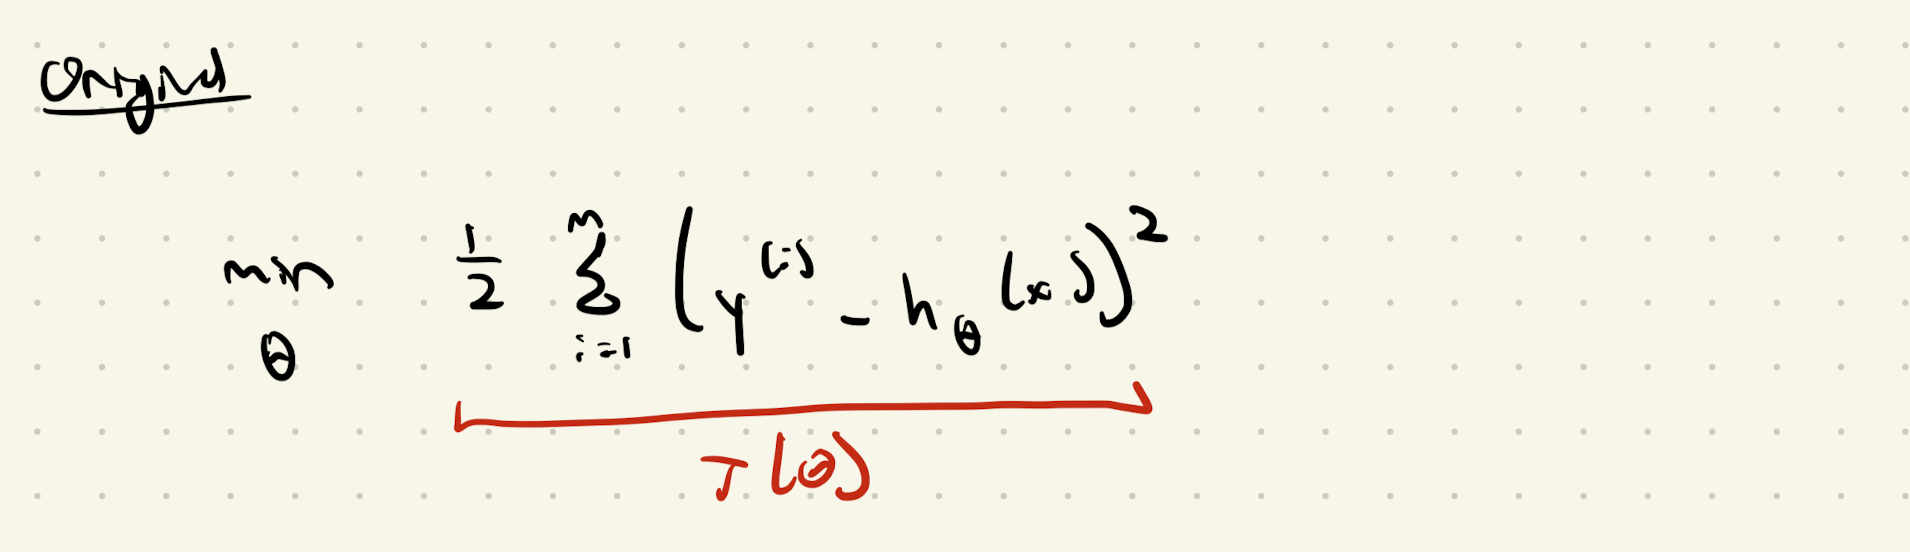 Original
min θ 1/2 Σ_{i=1}^{m} (y^{(i)} - h_θ(x))^2
J(θ)